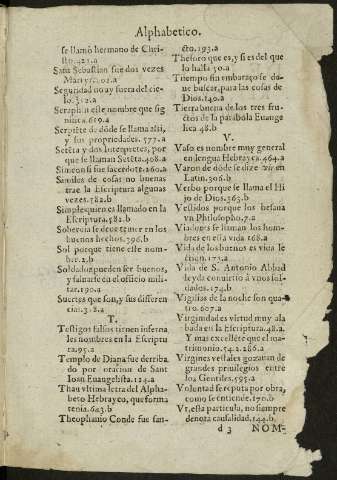 Alphabetico.
se llamò hermano de Chri-
sto.421.a
San Sebastian fue dos vezes
Martyr.
Seguridad no ay fuera del cie-
lo.312.a
Seraphin este nombre que sig
nifica.619.a
Serpiẽte de dõde se llama assi,
y sus propriedades. 577.a
Setẽta y dos Interpretes, por
que se llaman Setẽta.408.a
Simeon si fue sacerdote.160.a
Similes de cosas no buenas
trae la Escriptura algunas
vezes.382.b
Simple quien es llamado en la
Escriptura.582.b
Sobervia se deve temer en los
buenos hechos.396.b
Sol porque tiene este nom-
bre.2.b
Soldados pueden ser buenos,
y salvarse en el officio mili-
tar.190.a
Suertes que son, y sus differen
cias.318.a
T.
Testigos falsos tienen inferna
les nombres en la Escriptu
ra.95.a
Templo de Diana fue derriba
do por oracion de Sant
Ioan Euangelista.124.a
Thau vltima letra del Alpha-
beto Hebrayco, que forma
tenia.643.b
Theophanio Conde fue san-
cto.193.a
Thesoro que es, y si es del que
lo halla 50.a
Tiempo sin embaraço se de-
ue buscar, para las cosas de
Dios.140.a
Tierra buena de los tres fru-
ctos de la parabola Euange
lica 48.b
V.
Vaso es nombre muy general
en lengua Hebrayca.464.a
Varon de dõde se dize vir en
Latin.306.b
Verbo porque se llama el Hi
jo de Dios.365.b
Vestidos porque los besaua
vn Philosopho.7.a
Viadores se llaman los hom-
bres en esta vida 168.a
Vida de los buenos es viua le
ction.173.a
Vida de S. Antonio Abbad
leyda conuirtio à vnos sol-
dados.174.b
Vigilias de la noche son qua-
tro.607.a
Virginidad es virtud muy ala
bada en la Escriptura.48.a.
Y mas excellẽte que el ma-
trimonio.54.2.286.a
Virgines vestales gozauan de
grandes privilegios entre
los Gentiles.595.a
Voluntad se reputa por obra,
como se entiende.170.b
Vt, esta particula, no siempre
denota causalidad.144.b
d 3 NOM-